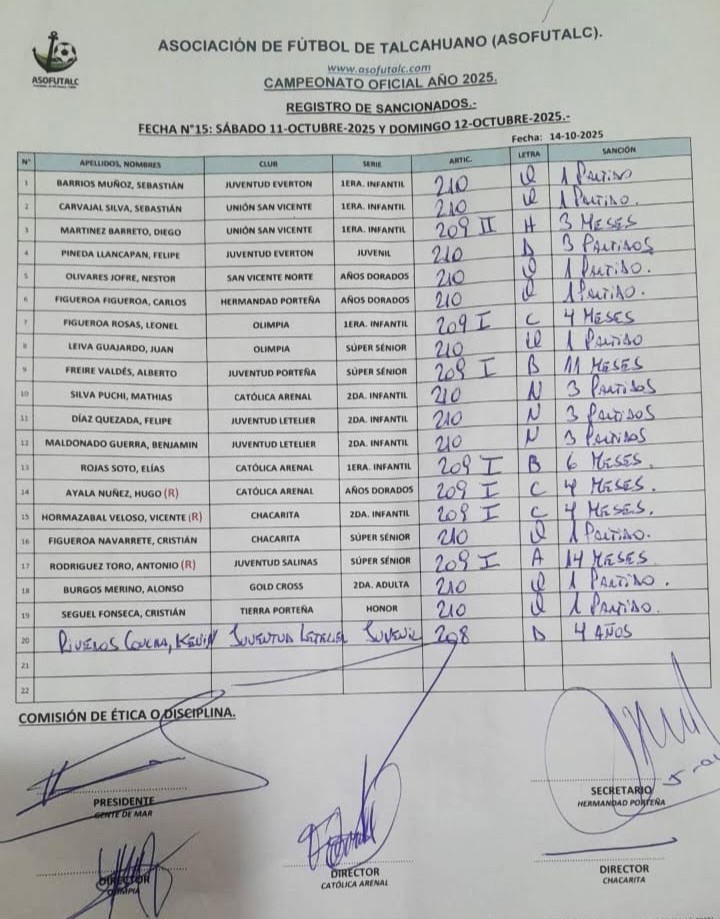 ASOFUTALC
ASOCIACIÓN DE FÚTBOL DE TALCAHUANO (ASOFUTALC).
www.asofutalc.com
CAMPEONATO OFICIAL AÑO 2025.
REGISTRO DE SANCIONADOS.-
FECHA N°15: SÁBADO 11-OCTUBRE-2025 Y DOMINGO 12-OCTUBRE-2025.-
Fecha: 14-10-2025
N° APELLIDOS, NOMBRES CLUB SERIE ARTIC. LETRA SANCIÓN
1 BARRIOS MUÑOZ, SEBASTIÁN JUVENTUD EVERTON 1ERA. INFANTIL 210 1 PARTIDO
2 CARVAJAL SILVA, SEBASTIÁN UNIÓN SAN VICENTE 1ERA. INFANTIL 210 1 PARTIDO.
3 MARTINEZ BARRETO, DIEGO UNIÓN SAN VICENTE 1ERA. INFANTIL 209 II H 3 MESES
4 PINEDA LLANCAPAN, FELIPE JUVENTUD EVERTON JUVENIL 210 D 3 PARTIDOS
5 OLIVARES JOFRE, NESTOR SAN VICENTE NORTE AÑOS DORADOS 210 1 PARTIDO.
6 FIGUEROA FIGUEROA, CARLOS HERMANDAD PORTEÑA AÑOS DORADOS 210 1 PARTIDO.
7 FIGUEROA ROSAS, LEONEL OLIMPIA 1ERA. INFANTIL 209 I C 4 MESES
8 LEIVA GUAJARDO, JUAN OLIMPIA SÚPER SÉNIOR 210 1 PARTIDO
9 FREIRE VALDÉS, ALBERTO JUVENTUD PORTEÑA SÚPER SÉNIOR 209 I B 11 MESES
10 SILVA PUCHI, MATHIAS CATÓLICA ARENAL 2DA. INFANTIL 210 N 3 PARTIDOS
11 DÍAZ QUEZADA, FELIPE JUVENTUD LETELIER 2DA. INFANTIL 210 N 3 PARTIDOS
12 MALDONADO GUERRA, BENJAMIN JUVENTUD LETELIER 2DA. INFANTIL 210 N 3 PARTIDOS
13 ROJAS SOTO, ELÍAS CATÓLICA ARENAL 1ERA. INFANTIL 209 I B 6 MESES.
14 AYALA NUÑEZ, HUGO (R) CATÓLICA ARENAL AÑOS DORADOS 209 I C 4 MESES.
15 HORMAZABAL VELOSO, VICENTE (R) CHACARITA 2DA. INFANTIL 209 I C 4 MESES.
16 FIGUEROA NAVARRETE, CRISTIÁN CHACARITA SÚPER SÉNIOR 210 1 PARTIDO.
17 RODRIGUEZ TORO, ANTONIO (R) JUVENTUD SALINAS SÚPER SÉNIOR 209 I A 14 MESES
18 BURGOS MERINO, ALONSO GOLD CROSS 2DA. ADULTA 210 1 PARTIDO.
19 SEGUEL FONSECA, CRISTIÁN TIERRA PORTEÑA HONOR 210 1 PARTIDO.
20 RIVEROS KEVIN JUVENTUD LETELIER JUVENIL 208 D 4 AÑOS
21
22
COMISIÓN DE ÉTICA O DISCIPLINA.
PRESIDENTE
GENTE DE MAR
SECRETARIO
HERMANDAD PORTEÑA
DIRECTOR
OLIMPIA
DIRECTOR
CATÓLICA ARENAL
DIRECTOR
CHACARITA